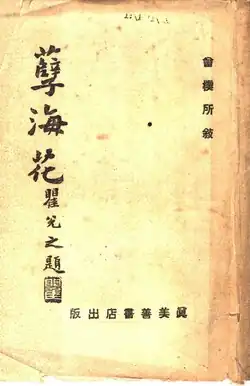 曾樸所敘
孽海花
瞿兌之題
真美善書店出版